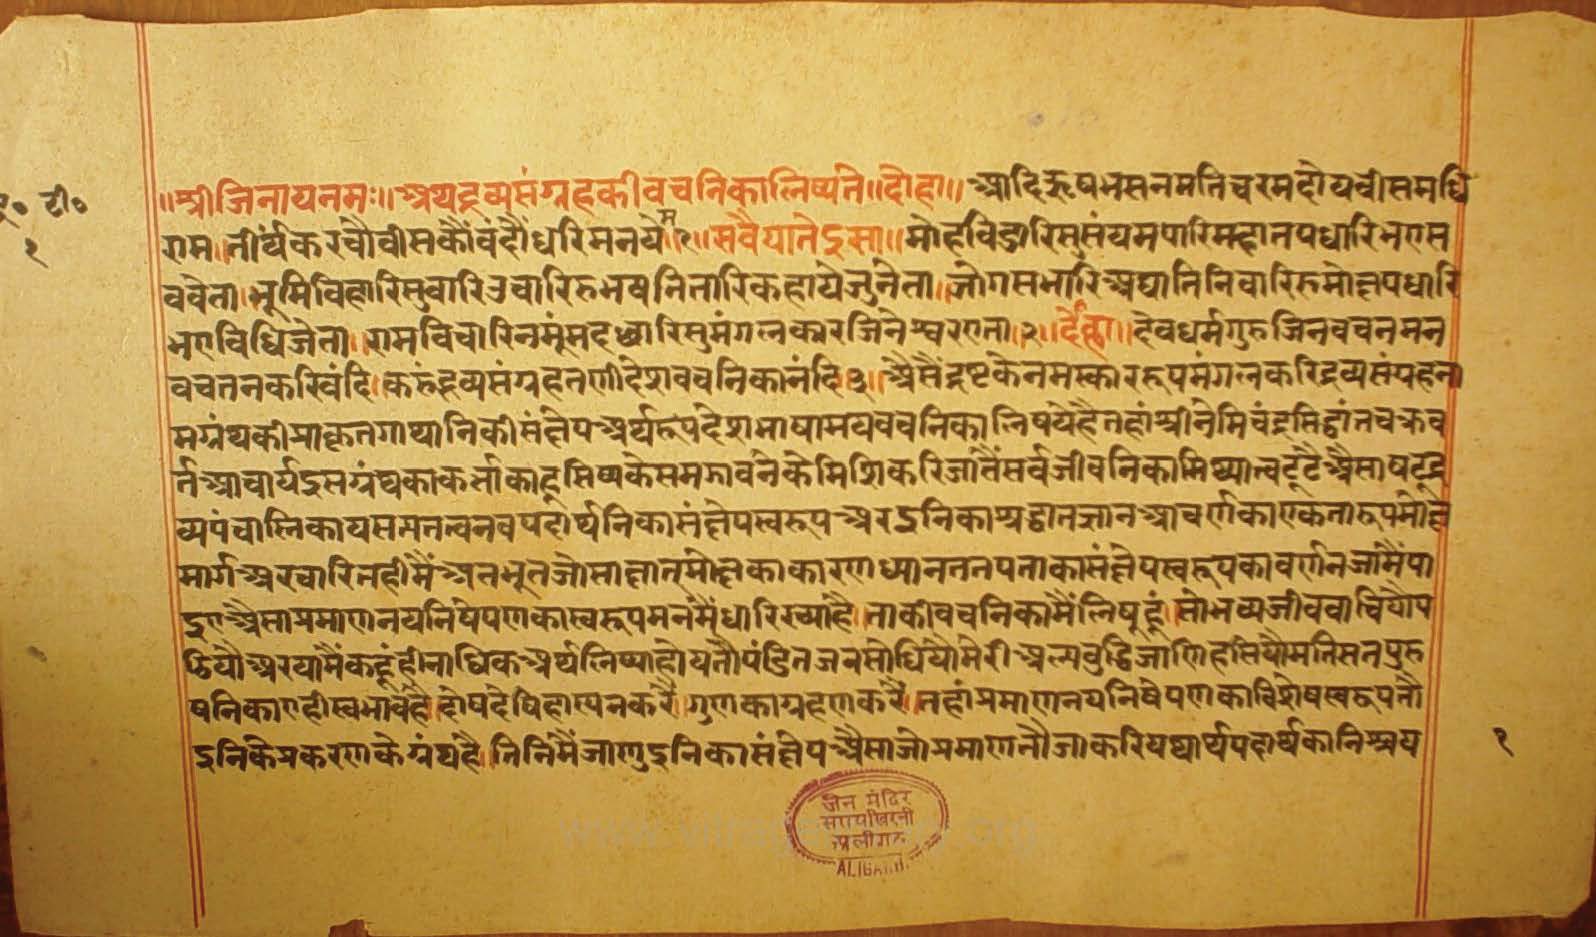 द्र॰ टी॰
१
॥श्रीजिनायनमः॥ अथद्रव्यसंग्रहकीवचनिकालिष्यते॥दोहा॥ आदिऋषभसनमतिचरमदोयवीसमधि
राम॥तीर्थकरचौवीसकौंवंदौंधरिमनयेम१॥सवैयातेइसा॥मोहविडारिसुसंयमपारिमहानपधारिभएस
ववेता॥भूमिविहारिसुवारिउचारिरुभव्यनितारिकहायेजुनेता॥जोगसभारिअघातिनिवारिरुमोक्षपधारि
भएविधिजेता॥रामविचारिनमूंसदध्यारिसुमंगलकारजिनेस्वरएता॥२॥दोहा॥देवधर्मगुरुजिनवचनमन
वचतनकरिवंदि॥करुंद्रव्यसंग्रहतणीदेशवचनिकानंदि३॥अैसैंइष्टकेनमस्काररूपमंगलकरिद्रव्यसंग्रहना
मग्रंथकीप्राकृतगाथानिकीसंक्षेपअर्थरूपदेशभाषामयवचनिकालिषयेहैतहांश्रीनेमिचंद्रसिद्धांतचक्रव
र्तआचार्यइसग्रंथकाकर्त्ताकाहूसिष्यकेसमझावनेकेमिशिकरिजातैंसर्वजीवनिकामिथ्यात्वटूटैअैसाषट्द्र
व्यपंचास्तिकायसप्ततत्वनवपदार्थनिकासंक्षेपस्वरूपअरइनिकाश्रद्धानज्ञानआचर्णकाएकतारूपमोक्ष
मार्गअरचारितहीमैंअंतभूतजोसाक्षात्मोक्षकाकारणध्यानततपताकासंक्षेपस्वरूपकावर्णनजामैंपा
इएअैसाप्रमाणनयनिषेपणकास्वरूपमनमैंधारिरच्याहै॥ताकीवचनिकामैंलिषूहूं॥सोभव्यजीववाचियौप
ढियौअरयामैंकहूंहीनाधिकअर्थलिष्याहोयतौपंडितजनसोधियौमेरीअल्पबुद्धिजाणिहसियौमतिसतपुरु
षनिकाएहीस्वभावहै॥दोषदेषिहास्यनकरै॥गुणकाग्रहणकरै॥तहांप्रमाणनयनिषेपणकाविशेषस्वरूपतौ
इनिकेप्रकरणकेग्रंथहै॥तिनिमैंजाणुइनिकासंक्षेपअैसाजोप्रमाणतौजाकरियथार्थपदार्थकानिश्चय
१
जैन मंदिर
अलीगढ
ALIGARH